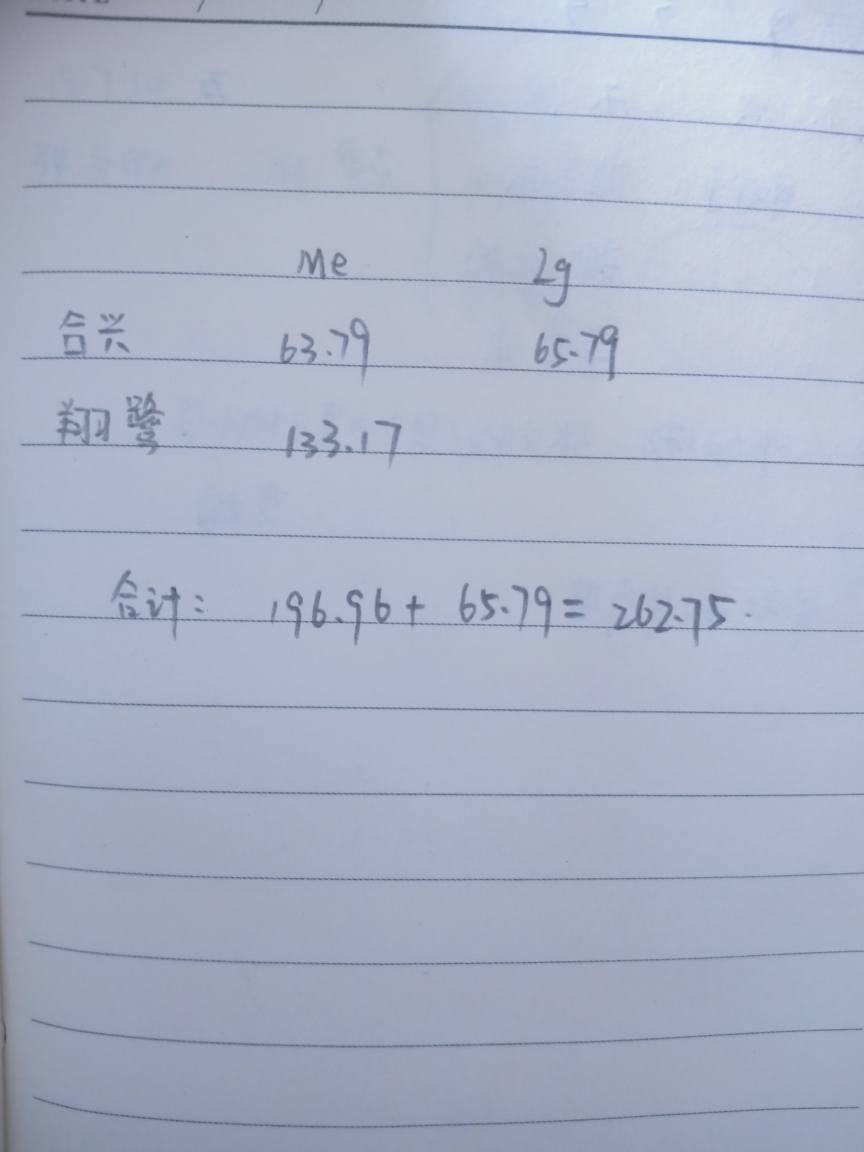 Me Lg
合兴 63.79 65.79
翔鹭 133.17
合计: 196.96 + 65.79 = 262.75.